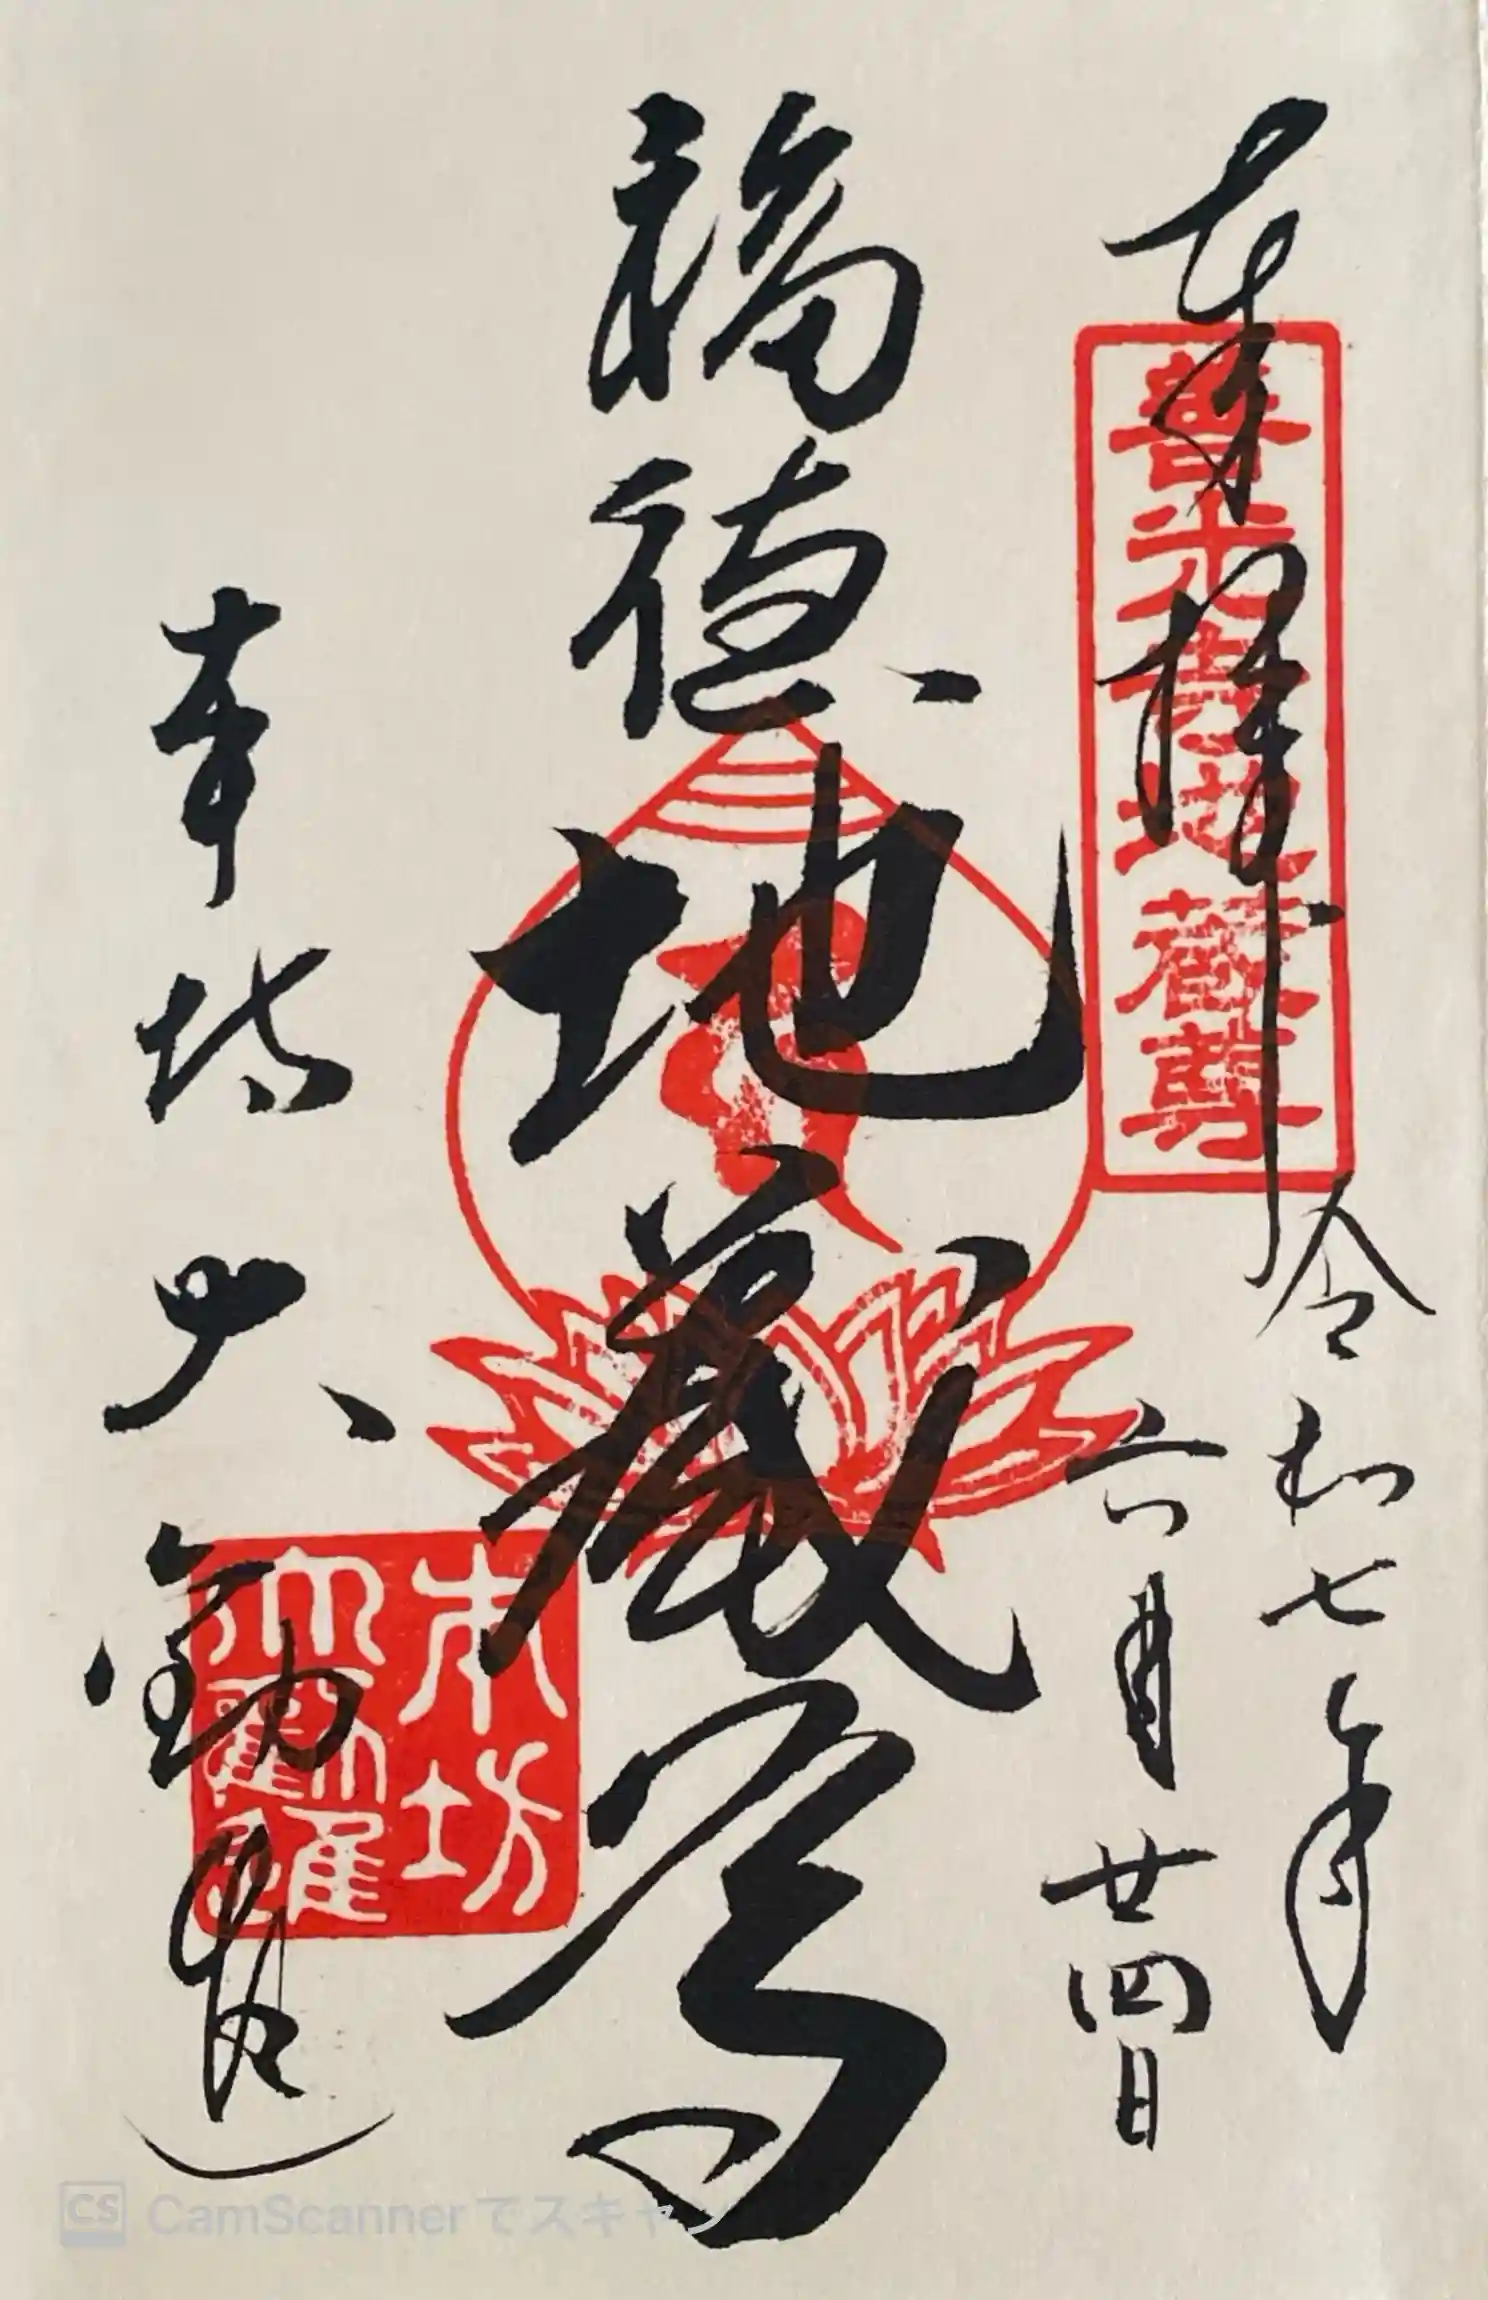 奉拝
令和七年
六月廿四日
普光世地蔵尊
福徳
地蔵尊
本坊
大勧進
本坊
大勧進
CamScannerでスキャン